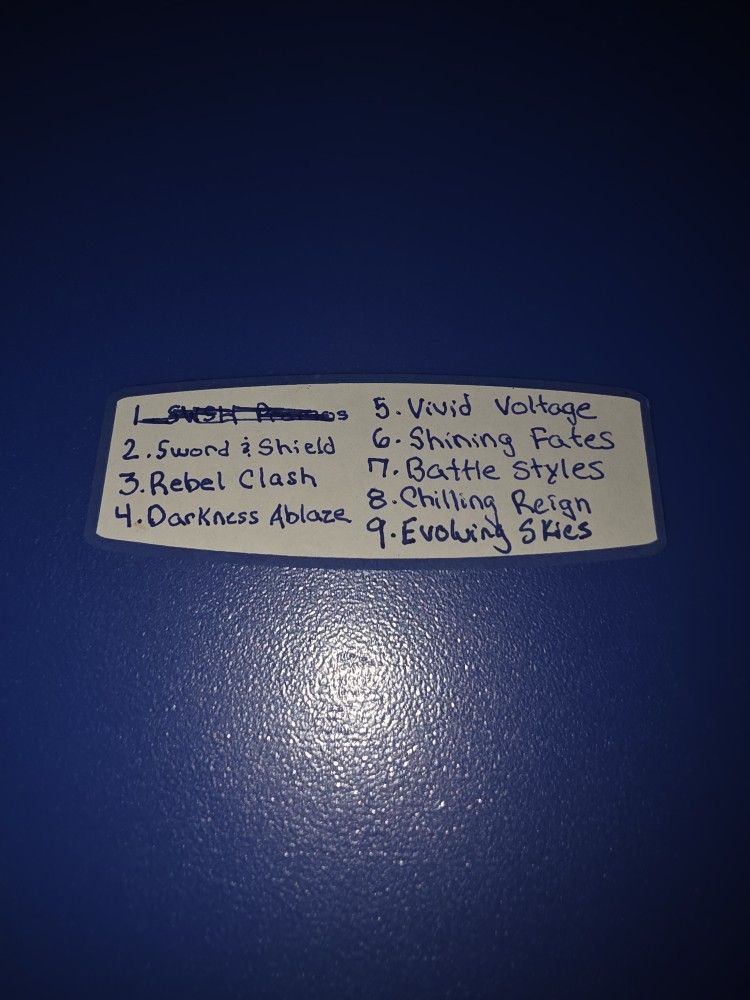 1 SWSH Promos
2. Sword & Shield
3. Rebel Clash
4. Darkness Ablaze
5. Vivid Voltage
6. Shining Fates
7. Battle Styles
8. Chilling Reign
9. Evolving Skies